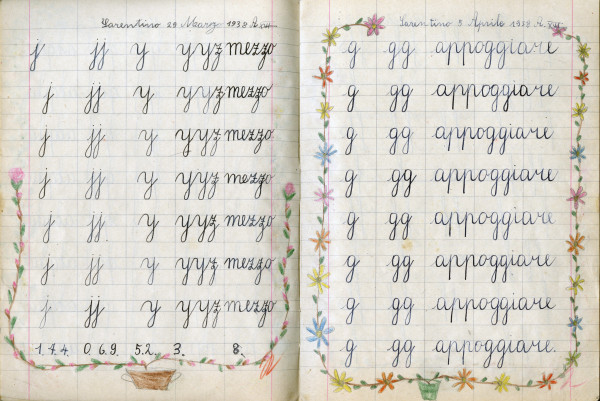 Sarentino 29 Marzo 1938 A. XVI
j jj y yyz mezzo
j jj y yyz mezzo
j jj y yyz mezzo
j jj y yyz mezzo
j jj y yyz mezzo
j jj y yyz mezzo
j jj y yyz mezzo
1. 4. 4. 0. 6. 9. 5. 2. 3. 8.
Sarentino 9 Aprile 1938 A. XVI
g gg appoggiare
g gg appoggiare
g gg appoggiare
g gg appoggiare
g gg appoggiare
g gg appoggiare
g gg appoggiare
g gg appoggiare.